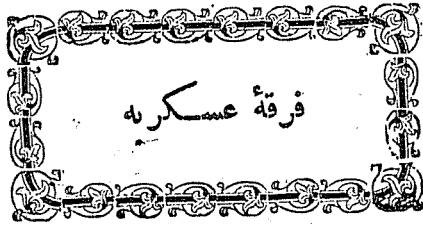 فرقهٔ عسكريه